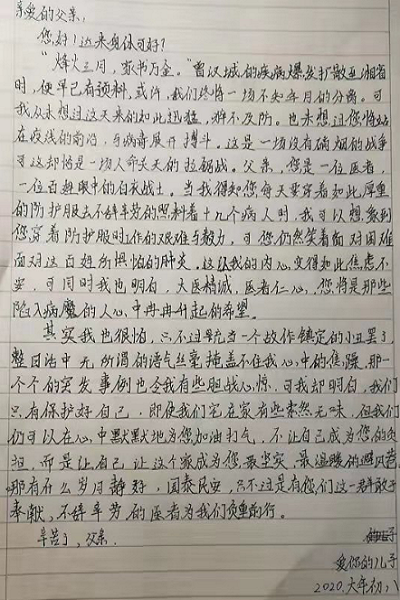 亲爱的父亲，
您好！近来身体可好？
"烽火三月，家书万金。"当汉城的疾病爆发扩散至湘省
时，便早已有预料，或许，我们终将一场不知年月的分离。可
我从未想过这天来的如此迅猛，猝不及防。也未想过您将站
在疫线的前沿，与病毒展开搏斗。这是一场没有硝烟的战争
可这却恰是一场人命关天的拉锯战。父亲，您是一位医者，
一位百姓眼中的白衣战士。当我得知您每天要穿着如此厚重
的防护服去不辞辛劳的照料着十九个病人时，我可以想象到
您穿着防护服时工作的艰难与毅力，可您仍然笑着面对困难
面对这百姓所惧怕的肺炎，这让我的内心变得如此焦虑不
安，可同时我也明白，大医精诚，医者仁心，您将是那些
陷入病魔的人心中冉冉升起的希望。
其实我也很怕，只不过要充当一个故作镇定的小丑罢了，
整日话中无所谓的语气丝毫掩盖不住我心中的焦躁，那一
个个的突发事例也令我有些胆战心惊，可我却明白，我们
只有保护好自己，即使我们宅在家有些索然无味，但我们
仍可以在心中默默地为您加油打气，不让自己成为您的负
担，而是让自己让这个家成为您最坚实、最温暖的避风港
那有什么岁月静好，国泰民安，只不过是有您们这一群敢于
奉献、不辞辛劳的医者为我们负重前行。
辛苦了，父亲。
爱你的儿子
2020.大年初八